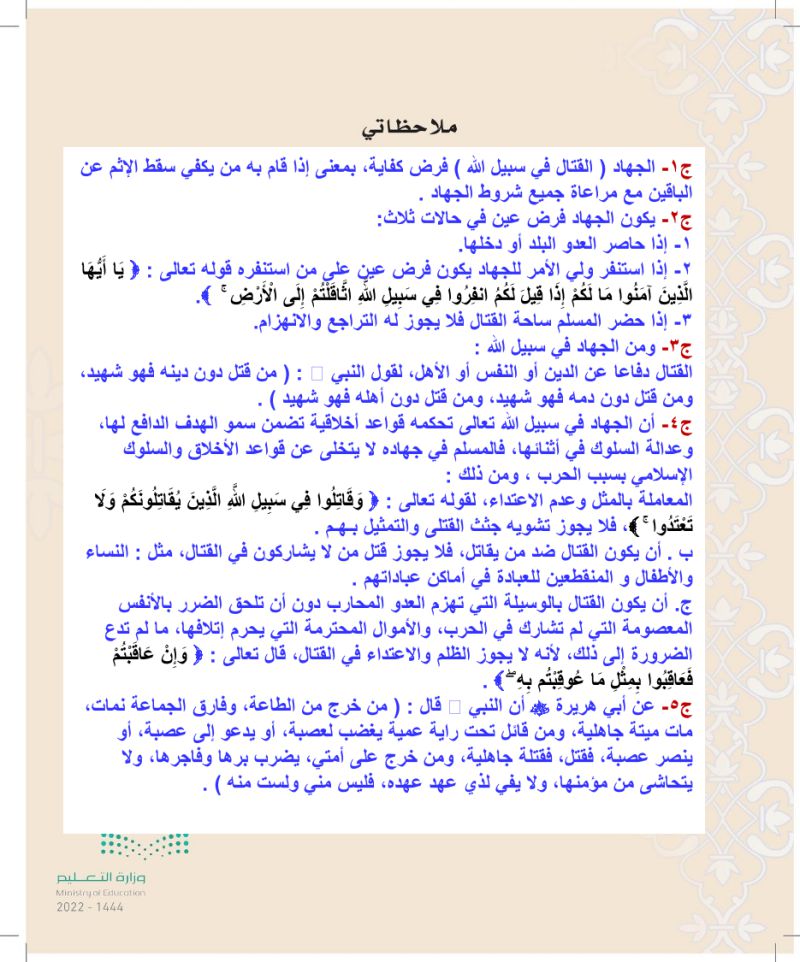 ملاحظاتي
ج١- الجهاد ( القتال في سبيل الله ) فرض كفاية، بمعنى إذا قام به من يكفي سقط الإثم عن
الباقين مع مراعاة جميع شروط الجهاد .
ج٢- يكون الجهاد فرض عين في حالات ثلاث:
١- إذا حاصر العدو البلد أو دخلها.
٢- إذا استنفر ولي الأمر للجهاد يكون فرض عين على من استنفره قوله تعالى : ﴿ يَا أَيُّهَا
الَّذِينَ آمَنُوا مَا لَكُمْ إِذَا قِيلَ لَكُمُ انفِرُوا فِي سَبِيلِ اللَّهِ اثَّاقَلْتُمْ إِلَى الْأَرْضِ ۚ ﴾.
٣- إذا حضر المسلم ساحة القتال فلا يجوز له التراجع والانهزام.
ج٣- ومن الجهاد في سبيل الله :
القتال دفاعا عن الدين أو النفس أو الأهل، لقول النبي □ : ( من قتل دون دينه فهو شهيد،
ومن قتل دون دمه فهو شهيد، ومن قتل دون أهله فهو شهيد ) .
ج٤- أن الجهاد في سبيل الله تعالى تحكمه قواعد أخلاقية تضمن سمو الهدف الدافع لها،
وعدالة السلوك في أثنائها، فالمسلم في جهاده لا يتخلى عن قواعد الأخلاق والسلوك
الإسلامي بسبب الحرب ، ومن ذلك :
المعاملة بالمثل وعدم الاعتداء، لقوله تعالى : ﴿ وَقَاتِلُوا فِي سَبِيلِ اللَّهِ الَّذِينَ يُقَاتِلُونَكُمْ وَلَا
تَعْتَدُوا ۚ ﴾، فلا يجوز تشويه جثث القتلى والتمثيل بـهـم .
ب . أن يكون القتال ضد من يقاتل، فلا يجوز قتل من لا يشاركون في القتال، مثل : النساء
والأطفال و المنقطعين للعبادة في أماكن عباداتهم .
ج. أن يكون القتال بالوسيلة التي تهزم العدو المحارب دون أن تلحق الضرر بالأنفس
المعصومة التي لم تشارك في الحرب، والأموال المحترمة التي يحرم إتلافها، ما لم تدع
الضرورة إلى ذلك، لأنه لا يجوز الظلم والاعتداء في القتال، قال تعالى : ﴿ وَإِنْ عَاقَبْتُمْ
فَعَاقِبُوا بِمِثْلِ مَا عُوقِبْتُم بِهِ ۖ ﴾ .
ج٥- عن أبي هريرة ﵁ أن النبي □ قال : ( من خرج من الطاعة، وفارق الجماعة نمات،
مات ميتة جاهلية، ومن قائل تحت راية عمية يغضب لعصبة، أو يدعو إلى عصبة، أو
ينصر عصبة، فقتل، فقتلة جاهلية، ومن خرج على أمتي، يضرب برها وفاجرها، ولا
يتحاشى من مؤمنها، ولا يفي لذي عهد عهده، فليس مني ولست منه ) .
وزارة التعـــليم
Ministry of Education
2022 - 1444